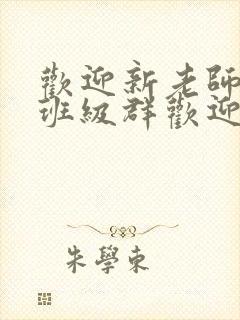 歡迎新老師
班級群歡迎
朱學東